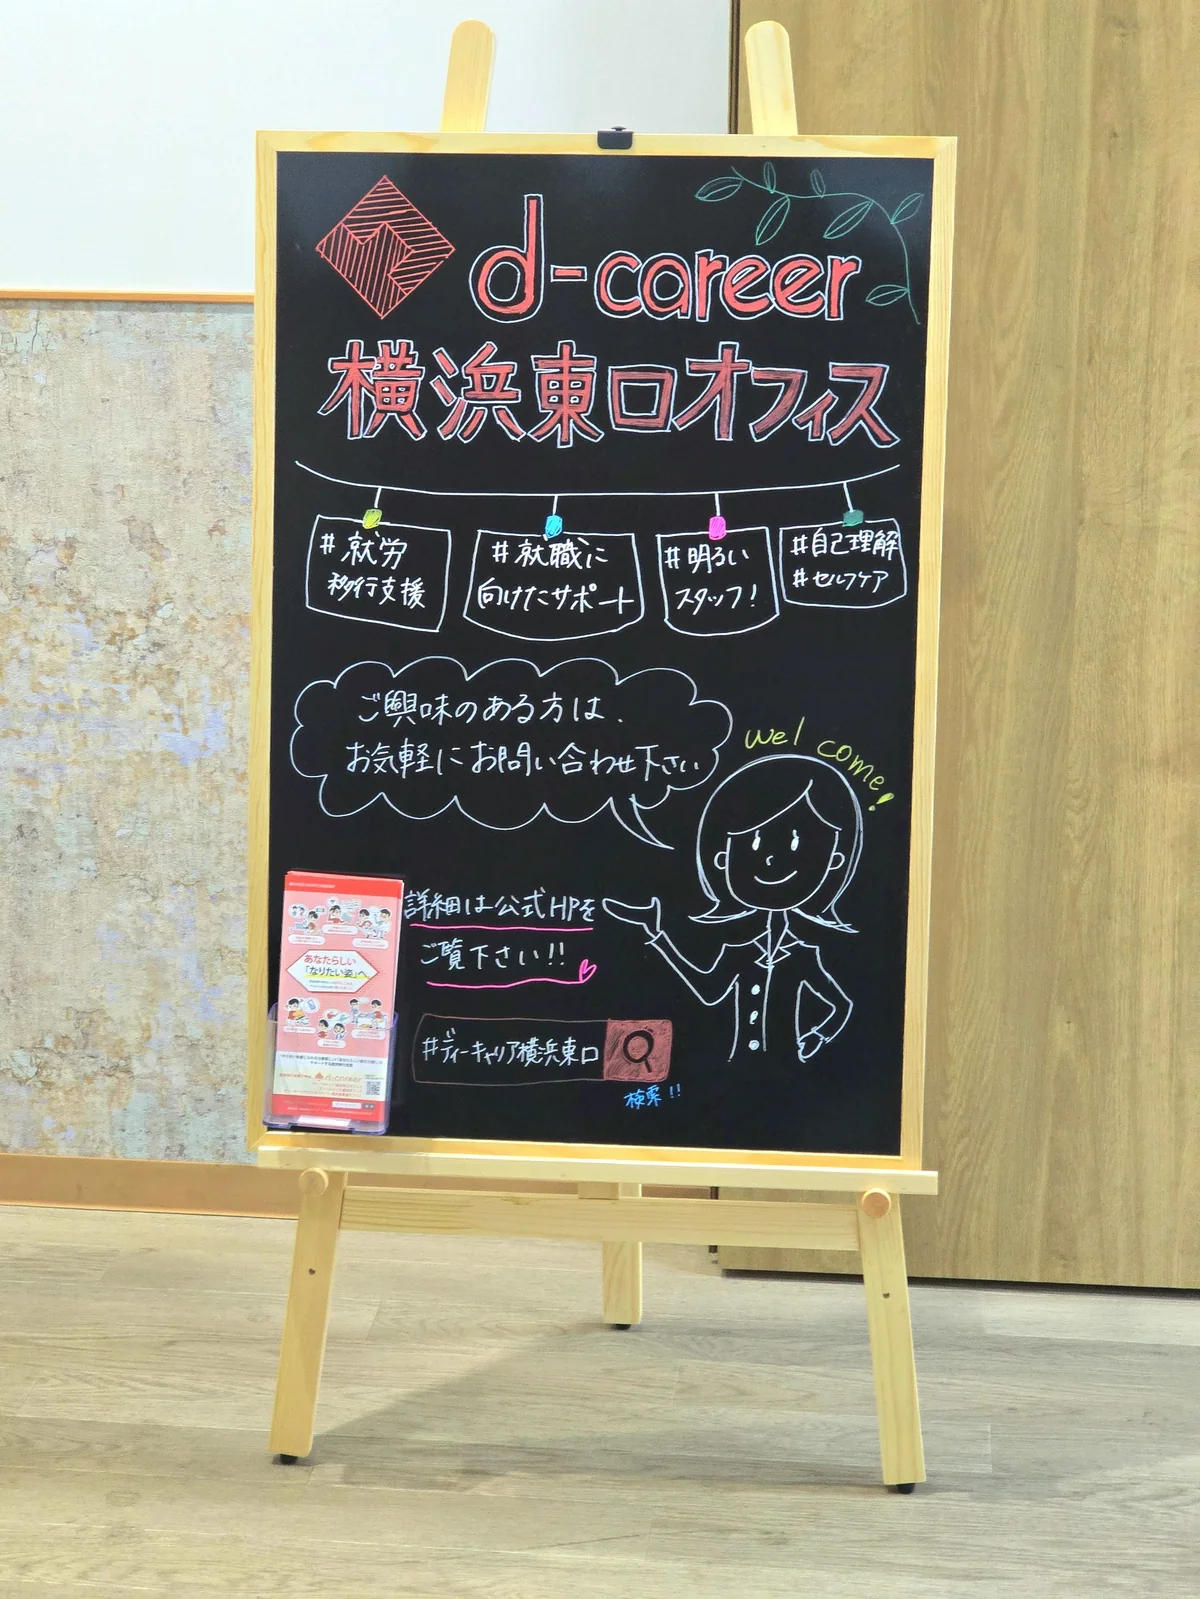 d-career
横浜東口オフィス
#就労
移行支援
#就職に
向けたサポート
#明るい
スタッフ!
#自己理解
#セルフケア
ご興味のある方は、
お気軽にお問い合わせ下さい
welcome!
詳細は公式HPを
ご覧下さい!!
#ディーキャリア横浜東口
検索!!
あなたらしい
「なりたい姿」へ
d-career